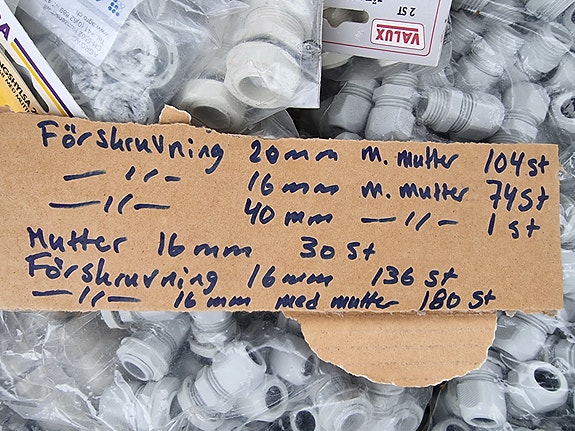 VALUX
2 ST
Förskruvning 20mm m. mutter 104st
— 11 — 16mm m. mutter 74st
— 11 — 40mm — 11 — 1 st
Mutter 16mm 30st
Förskruvning 16mm 136st
— 11 — 16mm med mutter 180 st